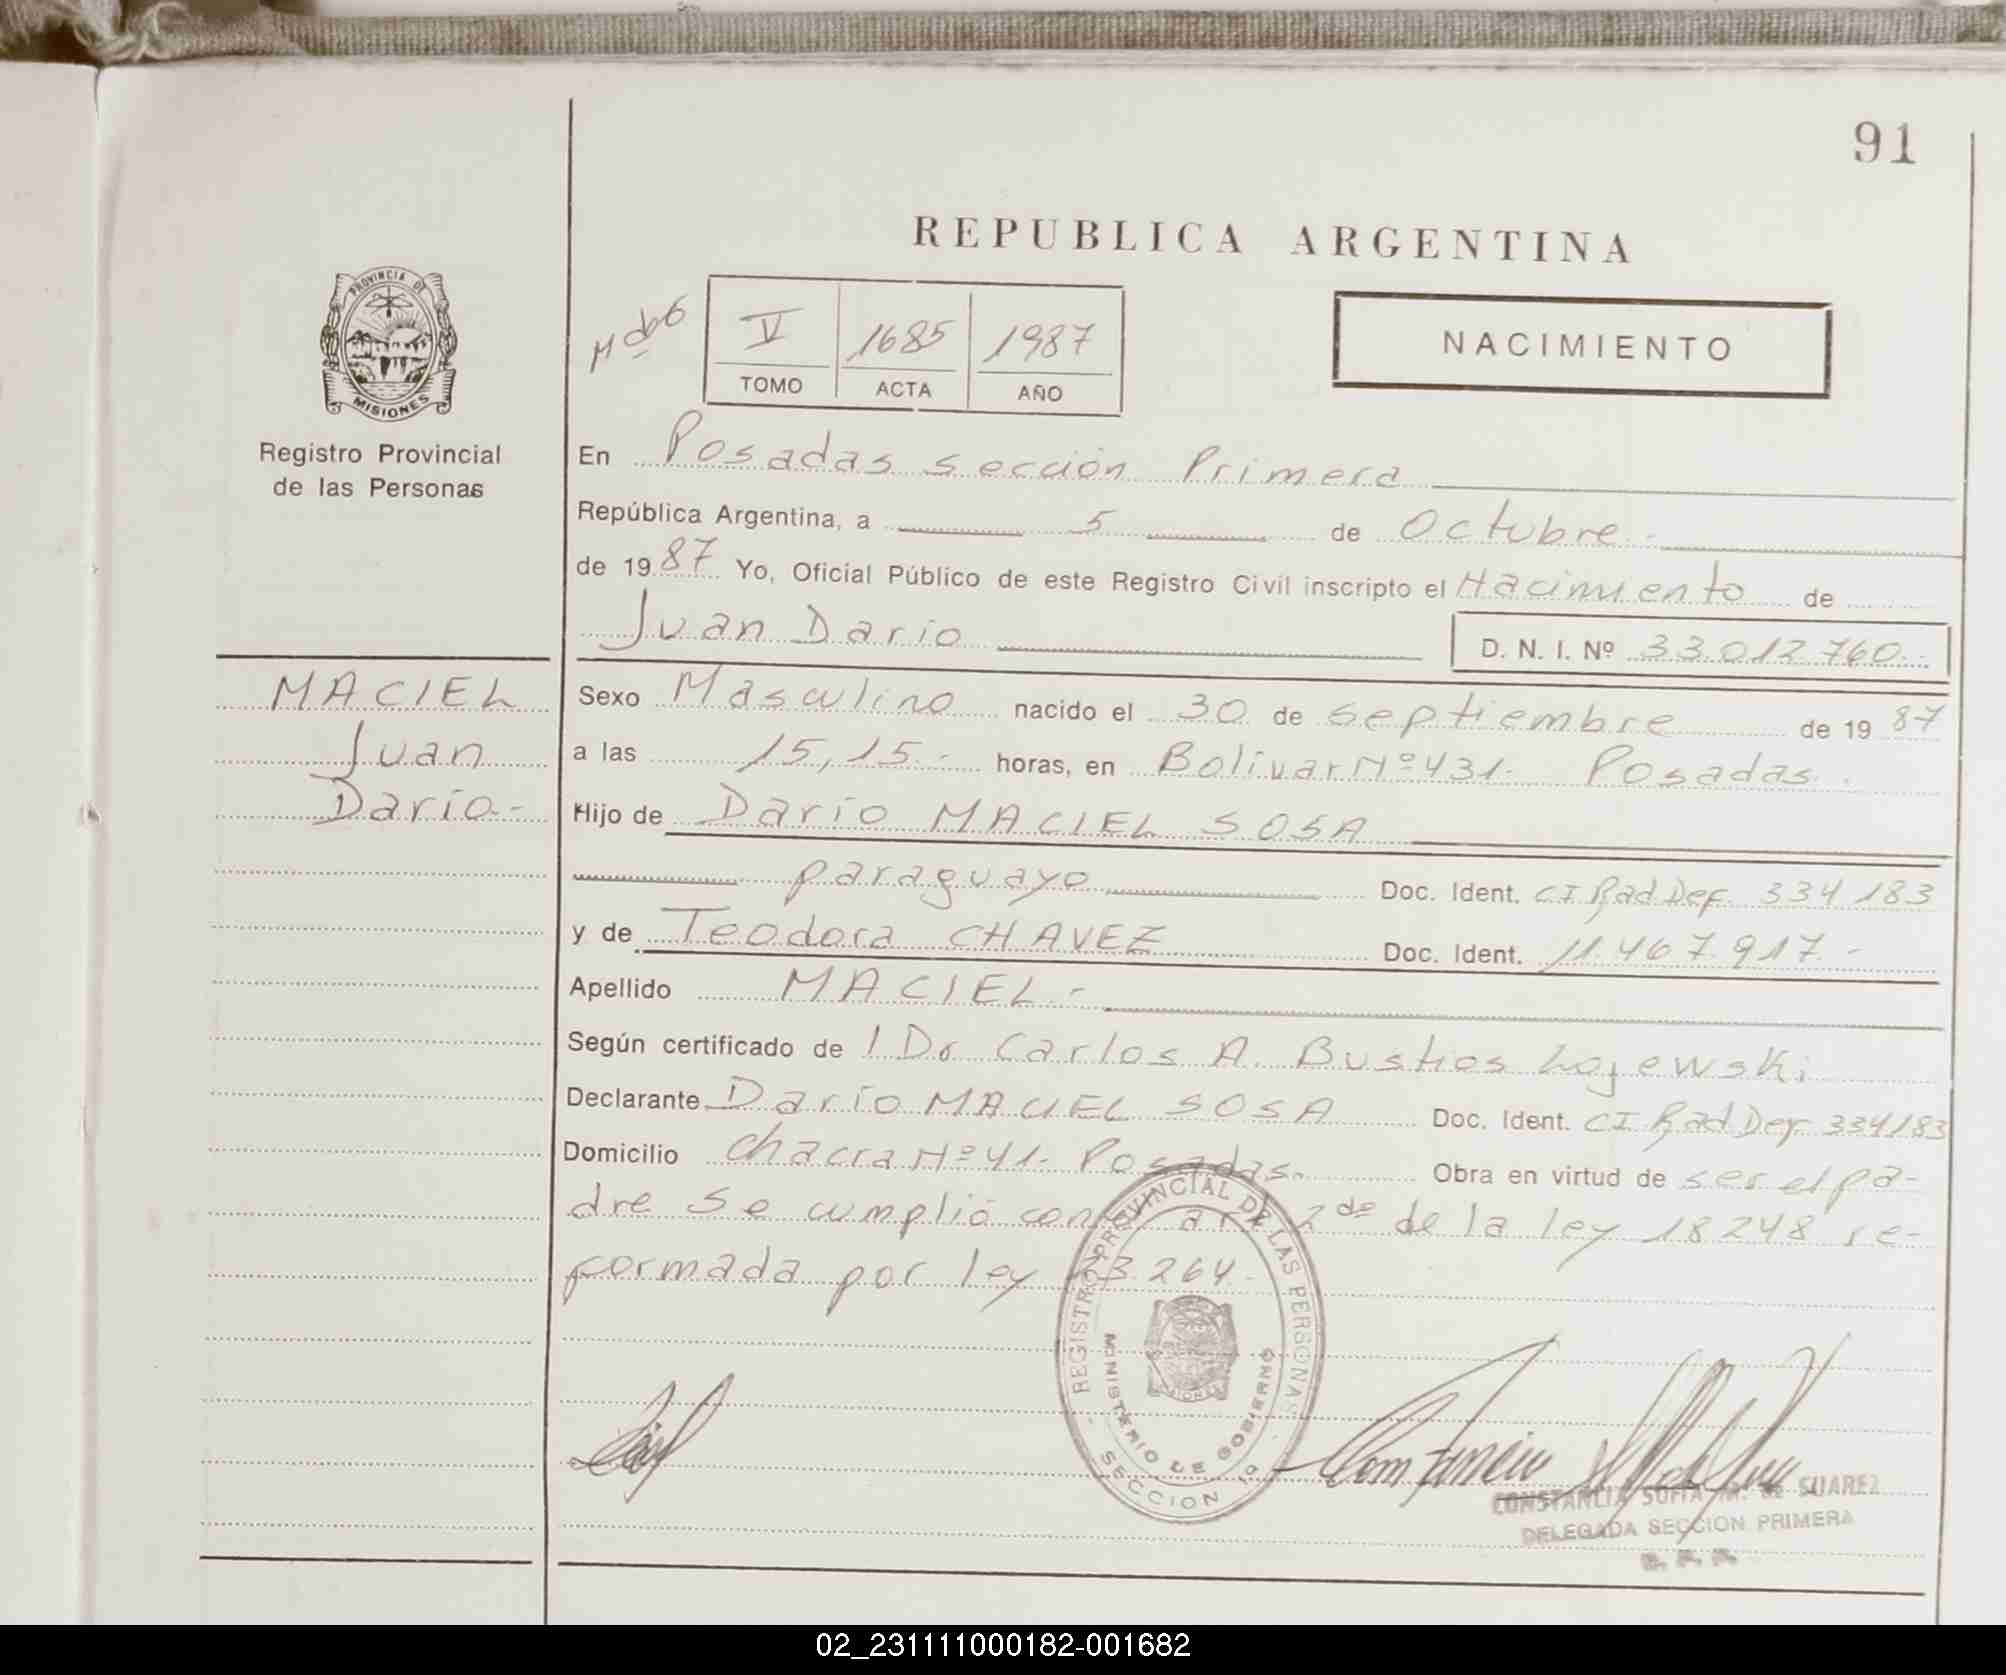 91
REPUBLICA ARGENTINA
PROVINCIA DE
MISIONES
V 1685 1987
TOMO ACTA AÑO
NACIMIENTO
Registro Provincial
de las Personas
En Posadas sección Primera
República Argentina, a 5 de Octubre.-
de 1987 Yo, Oficial Público de este Registro Civil inscripto el Nacimiento de
Juan Dario D. N. I. Nº 33.012.760.-
MACIEL
Juan
Dario.-
Sexo Masculino nacido el 30 de septiembre de 1987
a las 15,15.- horas, en Bolivar Nº 431. Posadas.
Hijo de Dario MACIEL SOSA
paraguayo Doc. Ident. CI Rad Def. 334183
y de Teodora CHAVEZ Doc. Ident. 11.467.917.-
Apellido MACIEL.-
Según certificado de l Dr Carlos A. Bustos Lojewski
Declarante Dario MACIEL SOSA Doc. Ident. CI Rad Def 334183
Domicilio chacra Nº 41. Posadas. Obra en virtud de ser el pa-
dre Se cumplió con ar 2do de la ley 18248 re-
formada por ley 23.264.-
REGISTRO PROVINCIAL DE LAS PERSONAS
MINISTERIO DE GOBIERNO
MISIONES
SECCION 1a
CONSTANCIA SOFIA M. de SUAREZ
DELEGADA SECCION PRIMERA
02_231111000182-001682